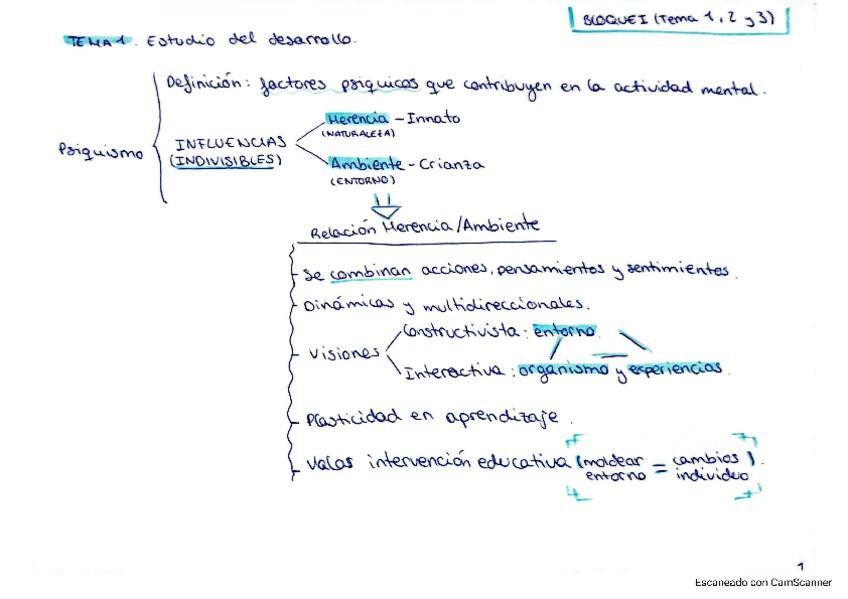 BLOQUE I (Tema 1, 2 y 3)
TEMA 1. Estudio del desarrollo.
Definición: factores psíquicos que contribuyen en la actividad mental.
Psiquismo
INFLUENCIAS
(INDIVISIBLES)
Herencia - Innato
(NATURALEZA)
Ambiente - Crianza
(ENTORNO)
Relación Herencia/Ambiente
Se combinan acciones, pensamientos y sentimientos.
Dinámicas y multidireccionales.
Visiones
Constructivista: entorno
Interactiva: organismo y experiencias.
Plasticidad en aprendizaje.
Valor intervención educativa (moldear entorno = cambios individuo).
1
Escaneado con CamScanner